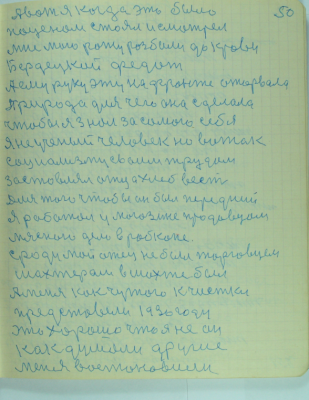 50
А вот я когда это было
поценом стоял и смотрел
мне мою рожу розбили до крови
Бердецкой федот
А ему руку эту на фронте оторвала
природа для чего она сделала
чтобы я знал за самого себя
я не умный человек но
социализму своим трудом
заставлял отца хлеб вест
для того чтобы он был передний
Я работал у могазине продавцом
мяснова дело в рабкопе.
сроду мой отец не был торговцем
шахтёрам в шахте был
А меня как чужого к чистки
представили 1930 году
это хорошо что я не он
как думали другие
меня востоновили